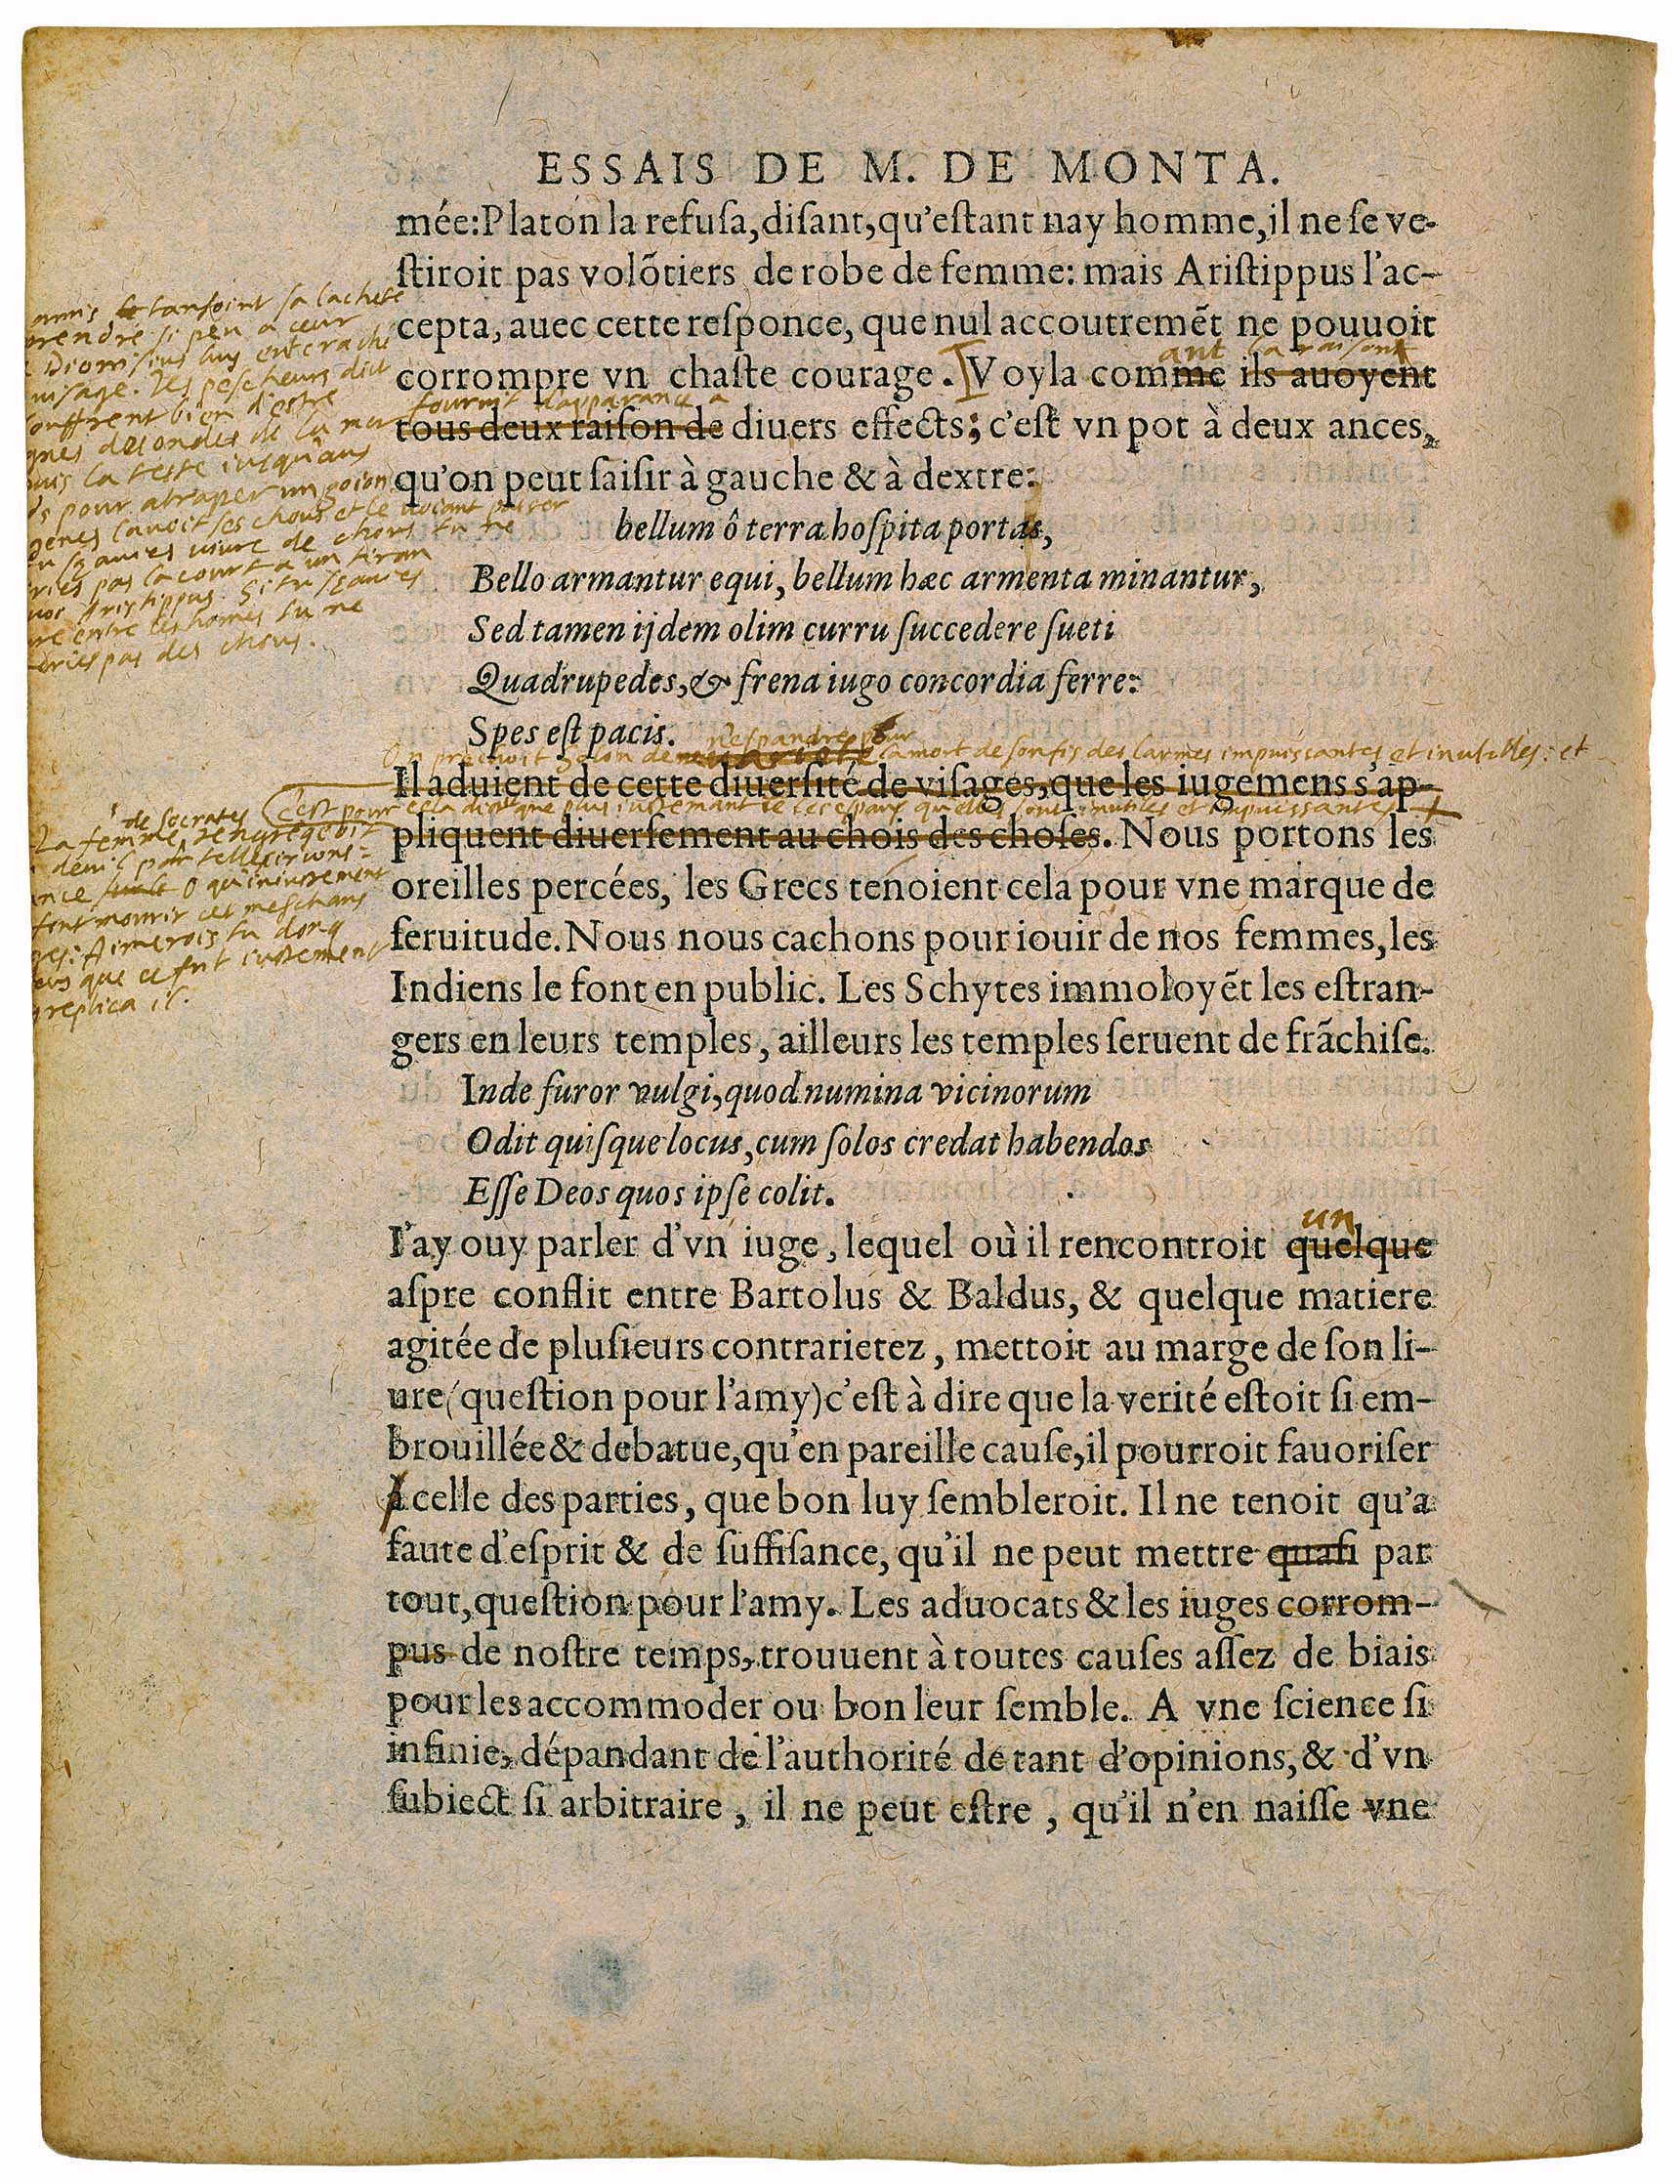 ESSAIS DE M. DE MONTA.
mée:Platon la refuſa,diſant,qu'eſtant nay homme,il ne ſe ve-
ſtiroit pas volōtiers de robe de femme: mais Ariſtippus l'ac-
cepta, auec cette reſponce, que nul accoutremēt ne pouuoit
ant la raison
corrompre vn chaſte courage. Voyla comme ils auoyent
fournit d'apparance a
tous deux raiſon de diuers effects; c'eſt vn pot à deux ances,
qu'on peut ſaiſir à gauche & à dextre:
amis tansoint sa lachete
prendre si peu a ceur
Dionisius luy eut craché
uisage. Les pescheurs dict
souffrent bien d'estre
gnes des ondes de la mer
uis la teste iusqu'aus
ds pour atraper un goion
genes lauoit ses chous et le uoiant passer
tu sçauies uiure de chous tu ne
ries pas la court a un tiran
uoi Aristippus. Si tu sçauies
ure entre les homes tu ne
eries pas des chous.
bellum ô terra hoſpita portas,
Bello armantur equi, bellum hæc armenta minantur,
Sed tamen ijdem olim curru ſuccedere ſueti
Quadrupedes, & frena iugo concordia ferre:
Spes eſt pacis.
On preschoit Solon de n'espandre pour la mort de son fis des larmes impuissantes et inutilles: et
Il aduient de cette diuerſité de viſages, que les iugemens s'ap-
c'est pour cela dict que plus iustemant ie les espans qu'elles sont inutiles et impuissantes
pliquent diuerſement au chois des choſes. Nous portons les
de Socrates
La femme rengregeoit
deuil par telle circons=
ance O qu'iniustement
font mourir ces meschans
ges: Aimerois tu donq
eus que ce fut iustement
replica il.
oreilles percées, les Grecs tenoient cela pour vne marque de
ſeruitude. Nous nous cachons pour iouir de nos femmes, les
Indiens le font en public. Les Schytes immoloyēt les eſtran-
gers en leurs temples, ailleurs les temples ſeruent de frāchiſe.
Inde furor vulgi, quod numina vicinorum
Odit quiſque locus, cum ſolos credat habendos
Eſſe Deos quos ipſe colit.
un
I'ay ouy parler d'vn iuge, lequel où il rencontroit quelque
aſpre conflit entre Bartolus & Baldus, & quelque matiere
agitée de pluſieurs contrarietez, mettoit au marge de ſon li-
ure (queſtion pour l'amy) c'eſt à dire que la verité eſtoit ſi em-
brouillée & debatue, qu'en pareille cauſe, il pourroit fauoriſer
celle des parties, que bon luy ſembleroit. Il ne tenoit qu'a
faute d'eſprit & de ſuffiſance, qu'il ne peut mettre quaſi par
tout, queſtion pour l'amy. Les aduocats & les iuges corrom-
pus de noſtre temps, trouuent à toutes cauſes aſſez de biais
pour les accommoder ou bon leur ſemble. A vne ſcience ſi
infinie, dépandant de l'authorité de tant d'opinions, & d'vn
ſubiect ſi arbitraire, il ne peut eſtre, qu'il n'en naiſſe vne